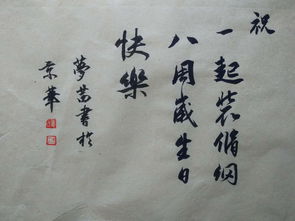 祝
一起装脩網
八周歲生日
快樂
夢茵書於
京華